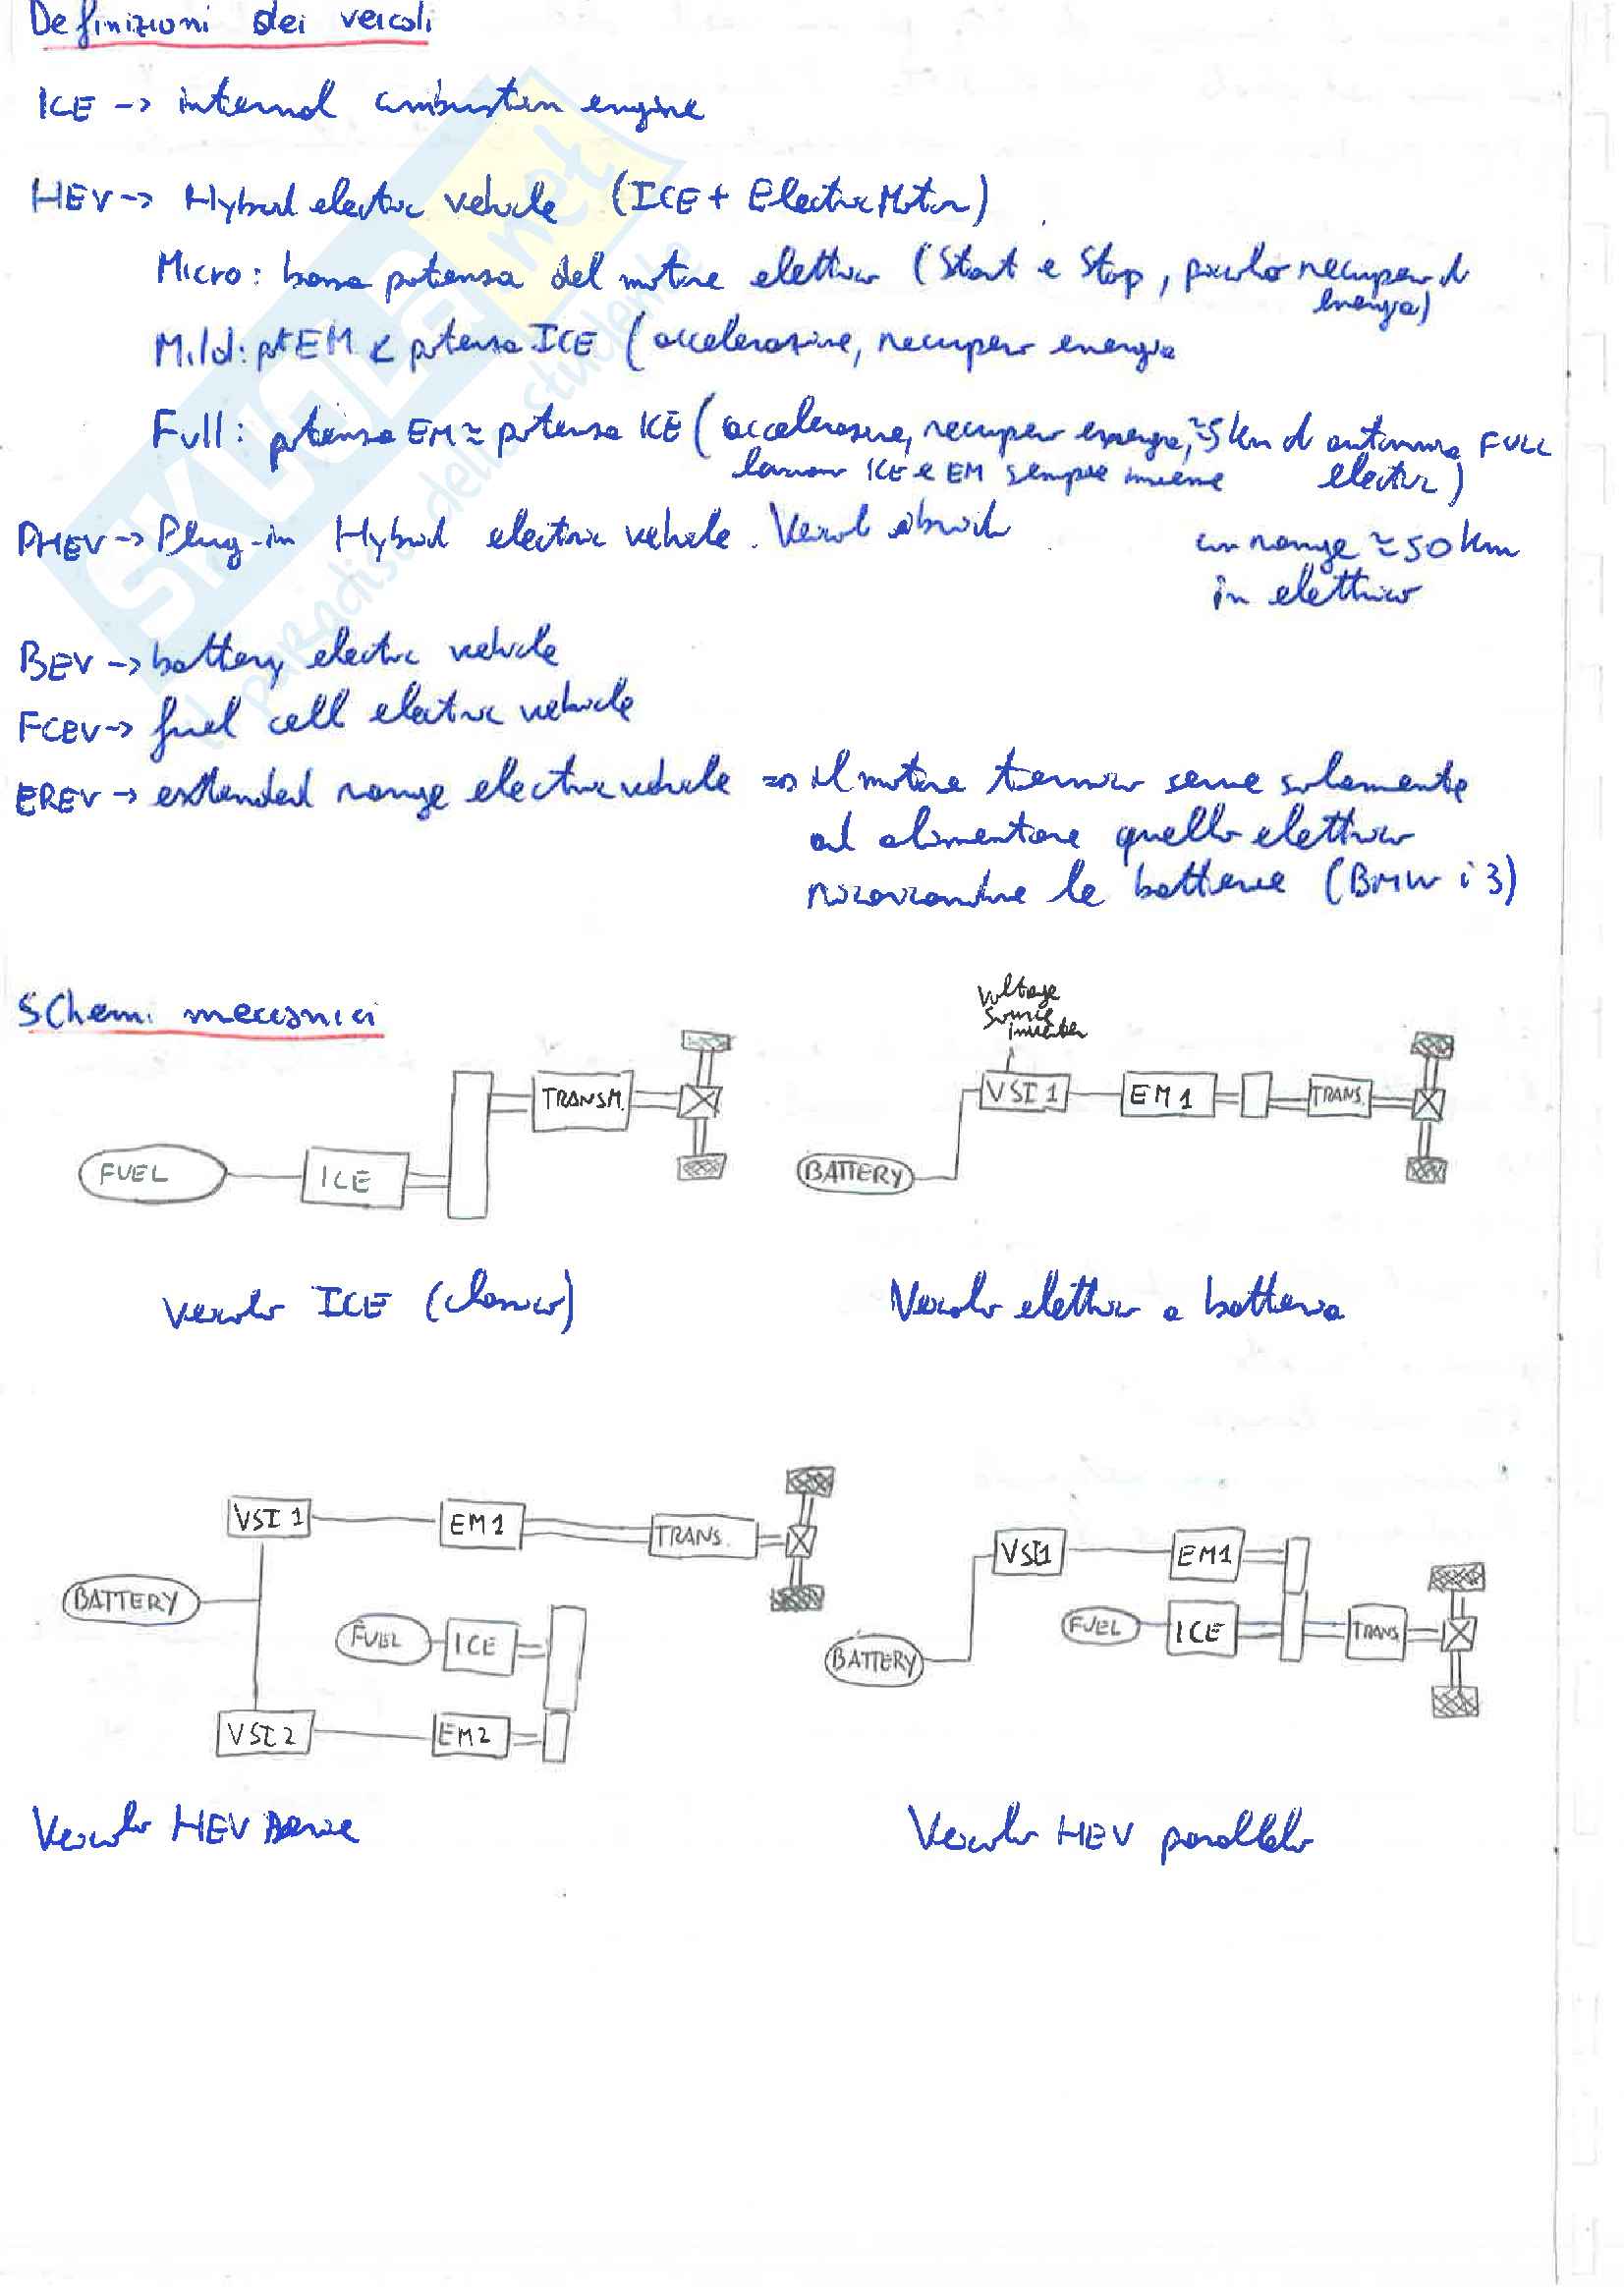 Definizioni dei veicoli
ICE -> internal combustion engine
HEV -> Hybrid electric vehicle (ICE + Electric Motor)
Micro: bassa potenza del motore elettrico (Start e Stop, piccolo recupero di
energia)
Mild: pot EM < potenza ICE (accelerazione, recupero energia
Full: potenza EM ≃ potenza ICE (accelerazione, recupero energia, ≃5 km di autonomia FULL
lavorano ICE e EM sempre insieme electric)
PHEV -> Plug-in Hybrid electric vehicle. Veicoli ibridi con range ≃ 50 km
in elettrico
BEV -> battery electric vehicle
FCEV -> fuel cell electric vehicle
EREV -> extended range electric vehicle => il motore termico serve solamente
ad alimentare quello elettrico
ricaricandone le batterie (BMW i3)
Schemi meccanici
Voltage
Source
inverter
FUEL ICE TRANSM.
BATTERY VSI 1 EM 1 TRANS.
Veicolo ICE (classico)
Veicolo elettrico a batteria
VSI 1 EM1 TRANS.
BATTERY
FUEL ICE
VSI 2 EM2
VSI1 EM1
FUEL ICE TRANS
BATTERY
Veicolo HEV serie
Veicolo HEV parallelo
SKUOLA.net
il paradiso dello studente